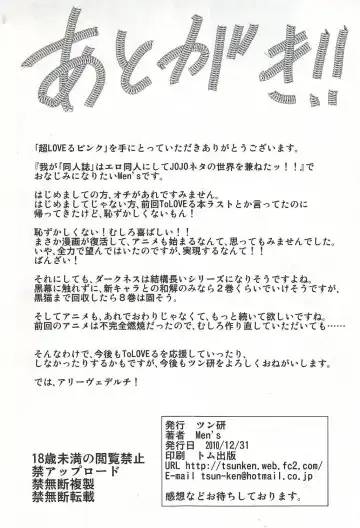 あとがき!!
「超LOVEるピンク」を手にとっていただきありがとうございます。
『我が「同人誌」はエロ同人にしてJOJOネタの世界を兼ねたッ！！』で
おなじみになりたいMen'sです。
はじめましての方、オチがあれですみません。
はじめましてじゃない方、前回ToLOVEる本ラストとか言ってたのに
帰ってきたけど、恥ずかしくないもん！
恥ずかしくない！むしろ喜ばしい！！
まさか漫画が復活して、アニメも始まるなんて、思ってもみませんでした。
いや、全力で望んではいたのですが、実現するなんて！！
ばんざい！
それにしても、ダークネスは結構長いシリーズになりそうですよね。
黒幕に触れずに、新キャラとの和解のみなら２巻くらいでいけそうですが、
黒猫まで回収したら８巻は固そう。
そしてアニメも、あれでおわりじゃなくて、もっと続いて欲しいですよね。
前回のアニメは不完全燃焼だったので、むしろ作り直していただいても……
そんなわけで、今後もToLOVEるを応援していったり、
しなかったりするかもですが、今後もツン研をよろしくおねがいします。
では、アリーヴェデルチ！
18歳未満の閲覧禁止
禁アップロード
禁無断複製
禁無断転載
発行　ツン研
著者　Men's
発行　2010/12/31
印刷　トム出版
URL http://tsunken.web.fc2.com/
E-mail tsun-ken@hotmail.co.jp
感想などお待ちしております。